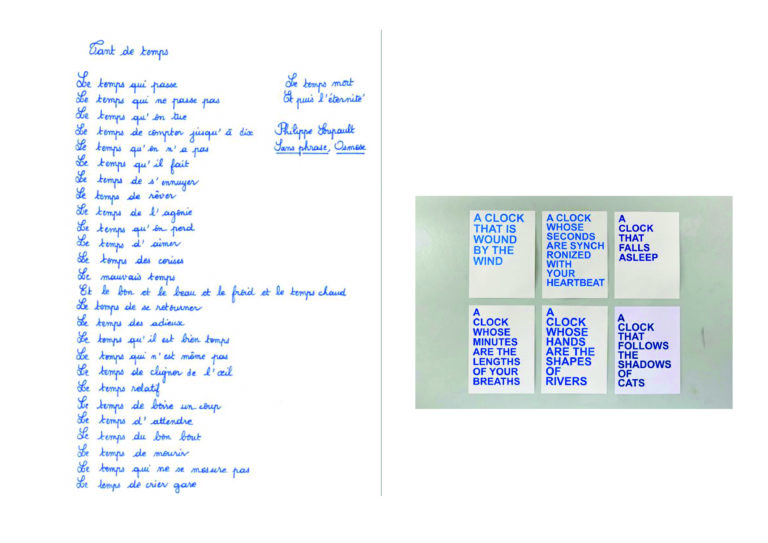 Tant de temps
Le temps qui passe
Le temps qui ne passe pas
Le temps qu'on tue
Le temps de compter jusqu'à dix
Le temps qu'on n'a pas
Le temps qu'il fait
Le temps de s'ennuyer
Le temps de rêver
Le temps de l'agonie
Le temps qu'on perd
Le temps d'aimer
Le temps des cerises
Le mauvais temps
Et le bon et le beau et le froid et le temps chaud
Le temps de se retourner
Le temps des adieux
Le temps qu'il est bien temps
Le temps qui n'est même pas
Le temps de cligner de l'œil
Le temps relatif
Le temps de boire un coup
Le temps d'attendre
Le temps du bon bout
Le temps de mourir
Le temps qui ne se mesure pas
Le temps de crier gare
Le temps mort
Et puis l'éternité
Philippe Soupault
Sans phrase, Osmose
A CLOCK
THAT IS
WOUND
BY THE
WIND
A CLOCK
WHOSE
SECONDS
ARE SYNCH
RONIZED
WITH
YOUR
HEARTBEAT
A
CLOCK
THAT
FALLS
ASLEEP
A
CLOCK
WHOSE
MINUTES
ARE THE
LENGTHS
OF YOUR
BREATHS
A
CLOCK
WHOSE
HANDS
ARE THE
SHAPES
OF
RIVERS
A
CLOCK
THAT
FOLLOWS
THE
SHADOWS
OF
CATS